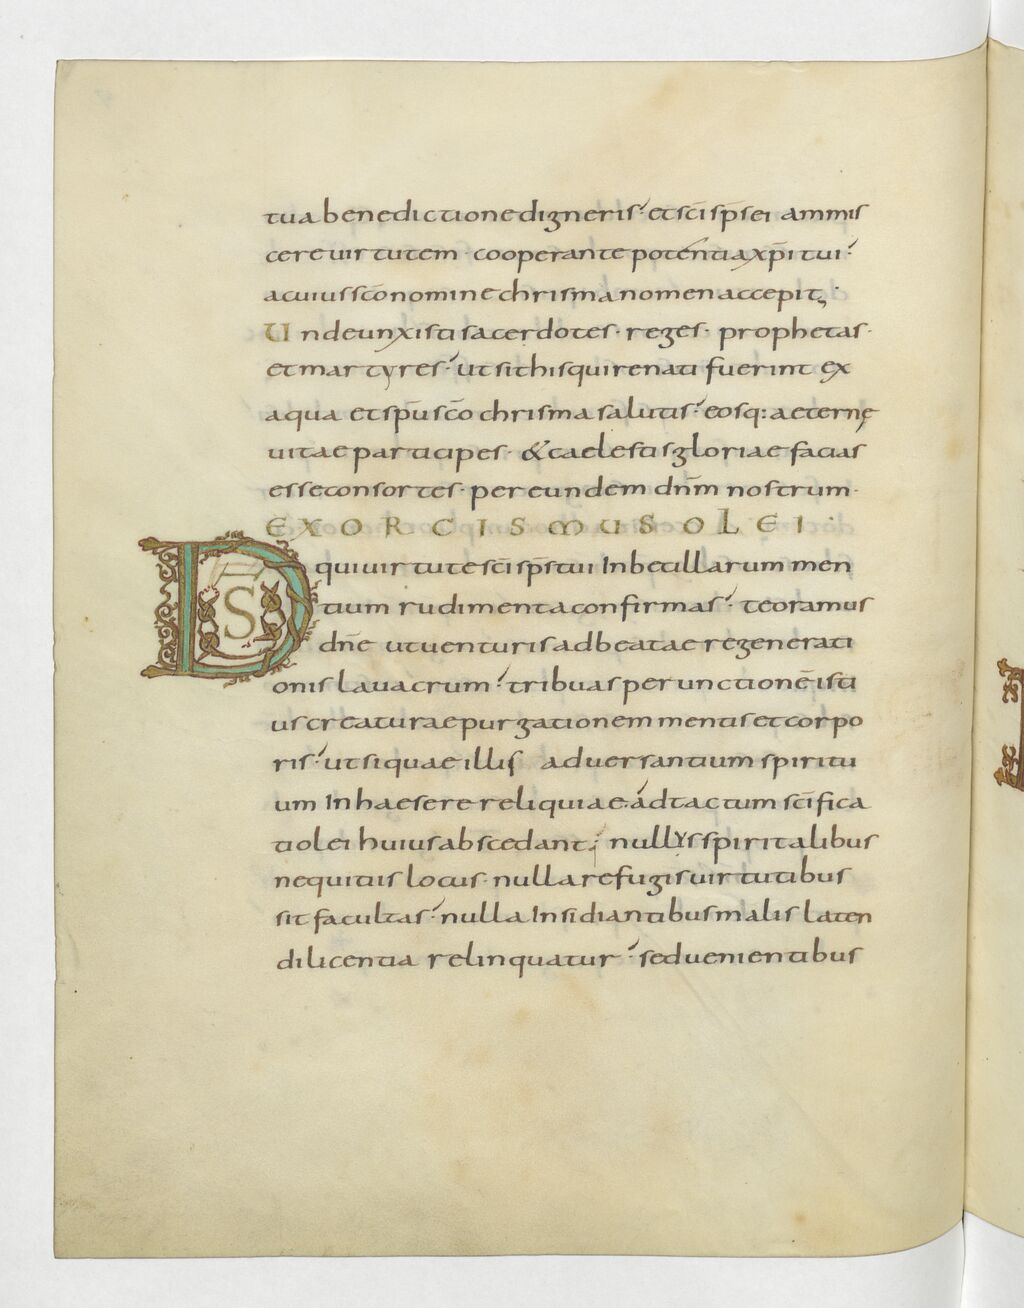 tua benedictione digneris· et sc̄i sp̄s ei ammis
cere uirtutem· cooperante potentia xp̄i tui·
a cuius sc̄o nomine chrisma nomen accepit;
Unde unxisti sacerdotes· reges· prophetas·
et martyres· ut sit his qui renati fuerint ex
aqua et sp̄u sc̄o chrisma salutis· eosq: aeternę
uitae participes· & caelestis gloriae facias
esse consortes· per eundem dn̄m nostrum·
EXORCISMUS OLEI·
D̄S qui uirtute sc̄i sp̄s tui Inbecillarum men
tium rudimenta confirmas· te oramus
dn̄e ut uenturis ad beatae regenerati
onis lauacrum· tribuas per unctionē isti
us creaturae purgationem mentis et corpo
ris· ut si quae illis aduersantium spiritu
um Inhaesere reliquiae· ad tactum sc̄ifica
ti olei huius abscedant; nullys spiritalibus
nequitiis locus· nulla refugis uirtutibus
sit facultas· nulla Insidiantibus malis laten
di licentia relinquatur· sed uenientibus